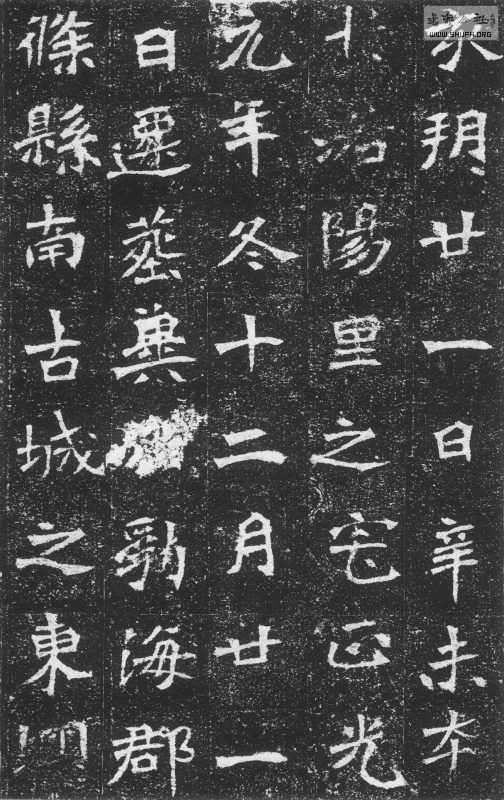 亥朔廿一日辛未卒
于洛陽里之宅正光
元年冬十二月廿一
日遷葬冀勃海郡
條縣南古城之東
書法 WWW.SHUFA.ORG